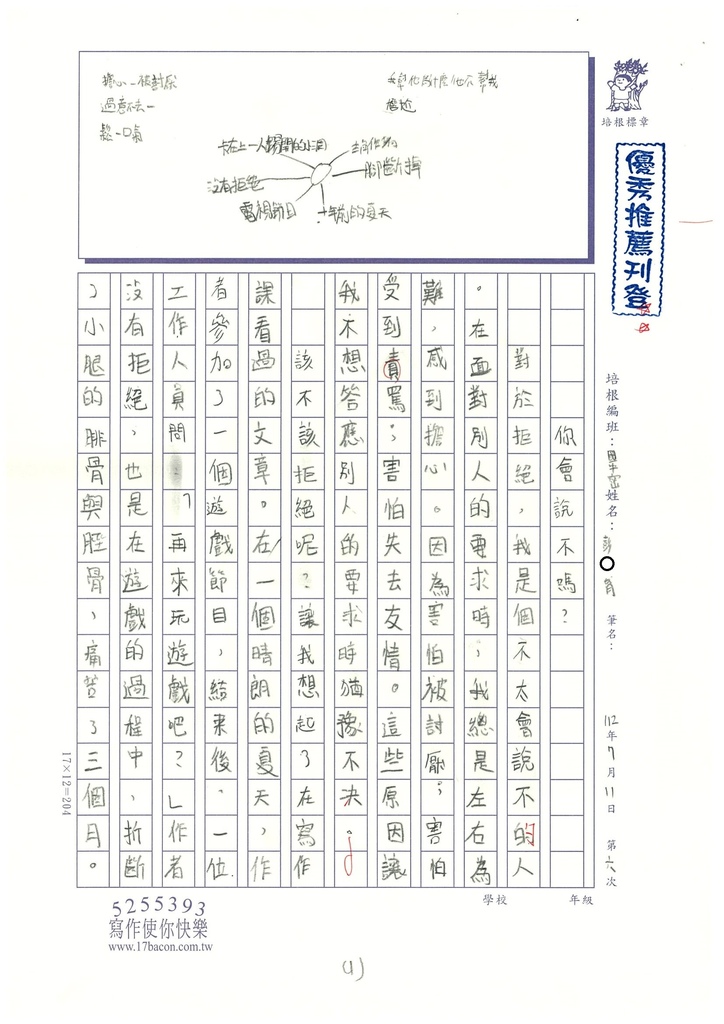 擔心 一 被討厭
過意不去一
鬆一口氣
尷尬
卡在上一人
腳斷掉
沒有拒絕
電視節目
十年前的夏天
培根標章
優秀推薦刊登
培根編班：
姓名：
筆名：
112年7月11日
第六次
你會說不嗎？
對於拒絕，我是個不太會說不的人
。在面對別人的要求時；我總是左右為
難，感到擔心。因為害怕被討厭；害怕
受到責罵；害怕失去友情。這些原因讓
我不想答應別人的要求時猶豫不決。
該不該拒絕呢？讓我想起了在寫作
課看過的文章。在一個晴朗的夏天，作
者參加了一個遊戲節目，結束後，一位
工作人員問：「再來玩遊戲吧？」作者
沒有拒絕，也是在遊戲的過程中，折斷
了小腿的腓骨與脛骨，痛苦了三個月。
17×12=204
學校
年級
5255393
寫作使你快樂
www.17bacon.com.tw
(1)